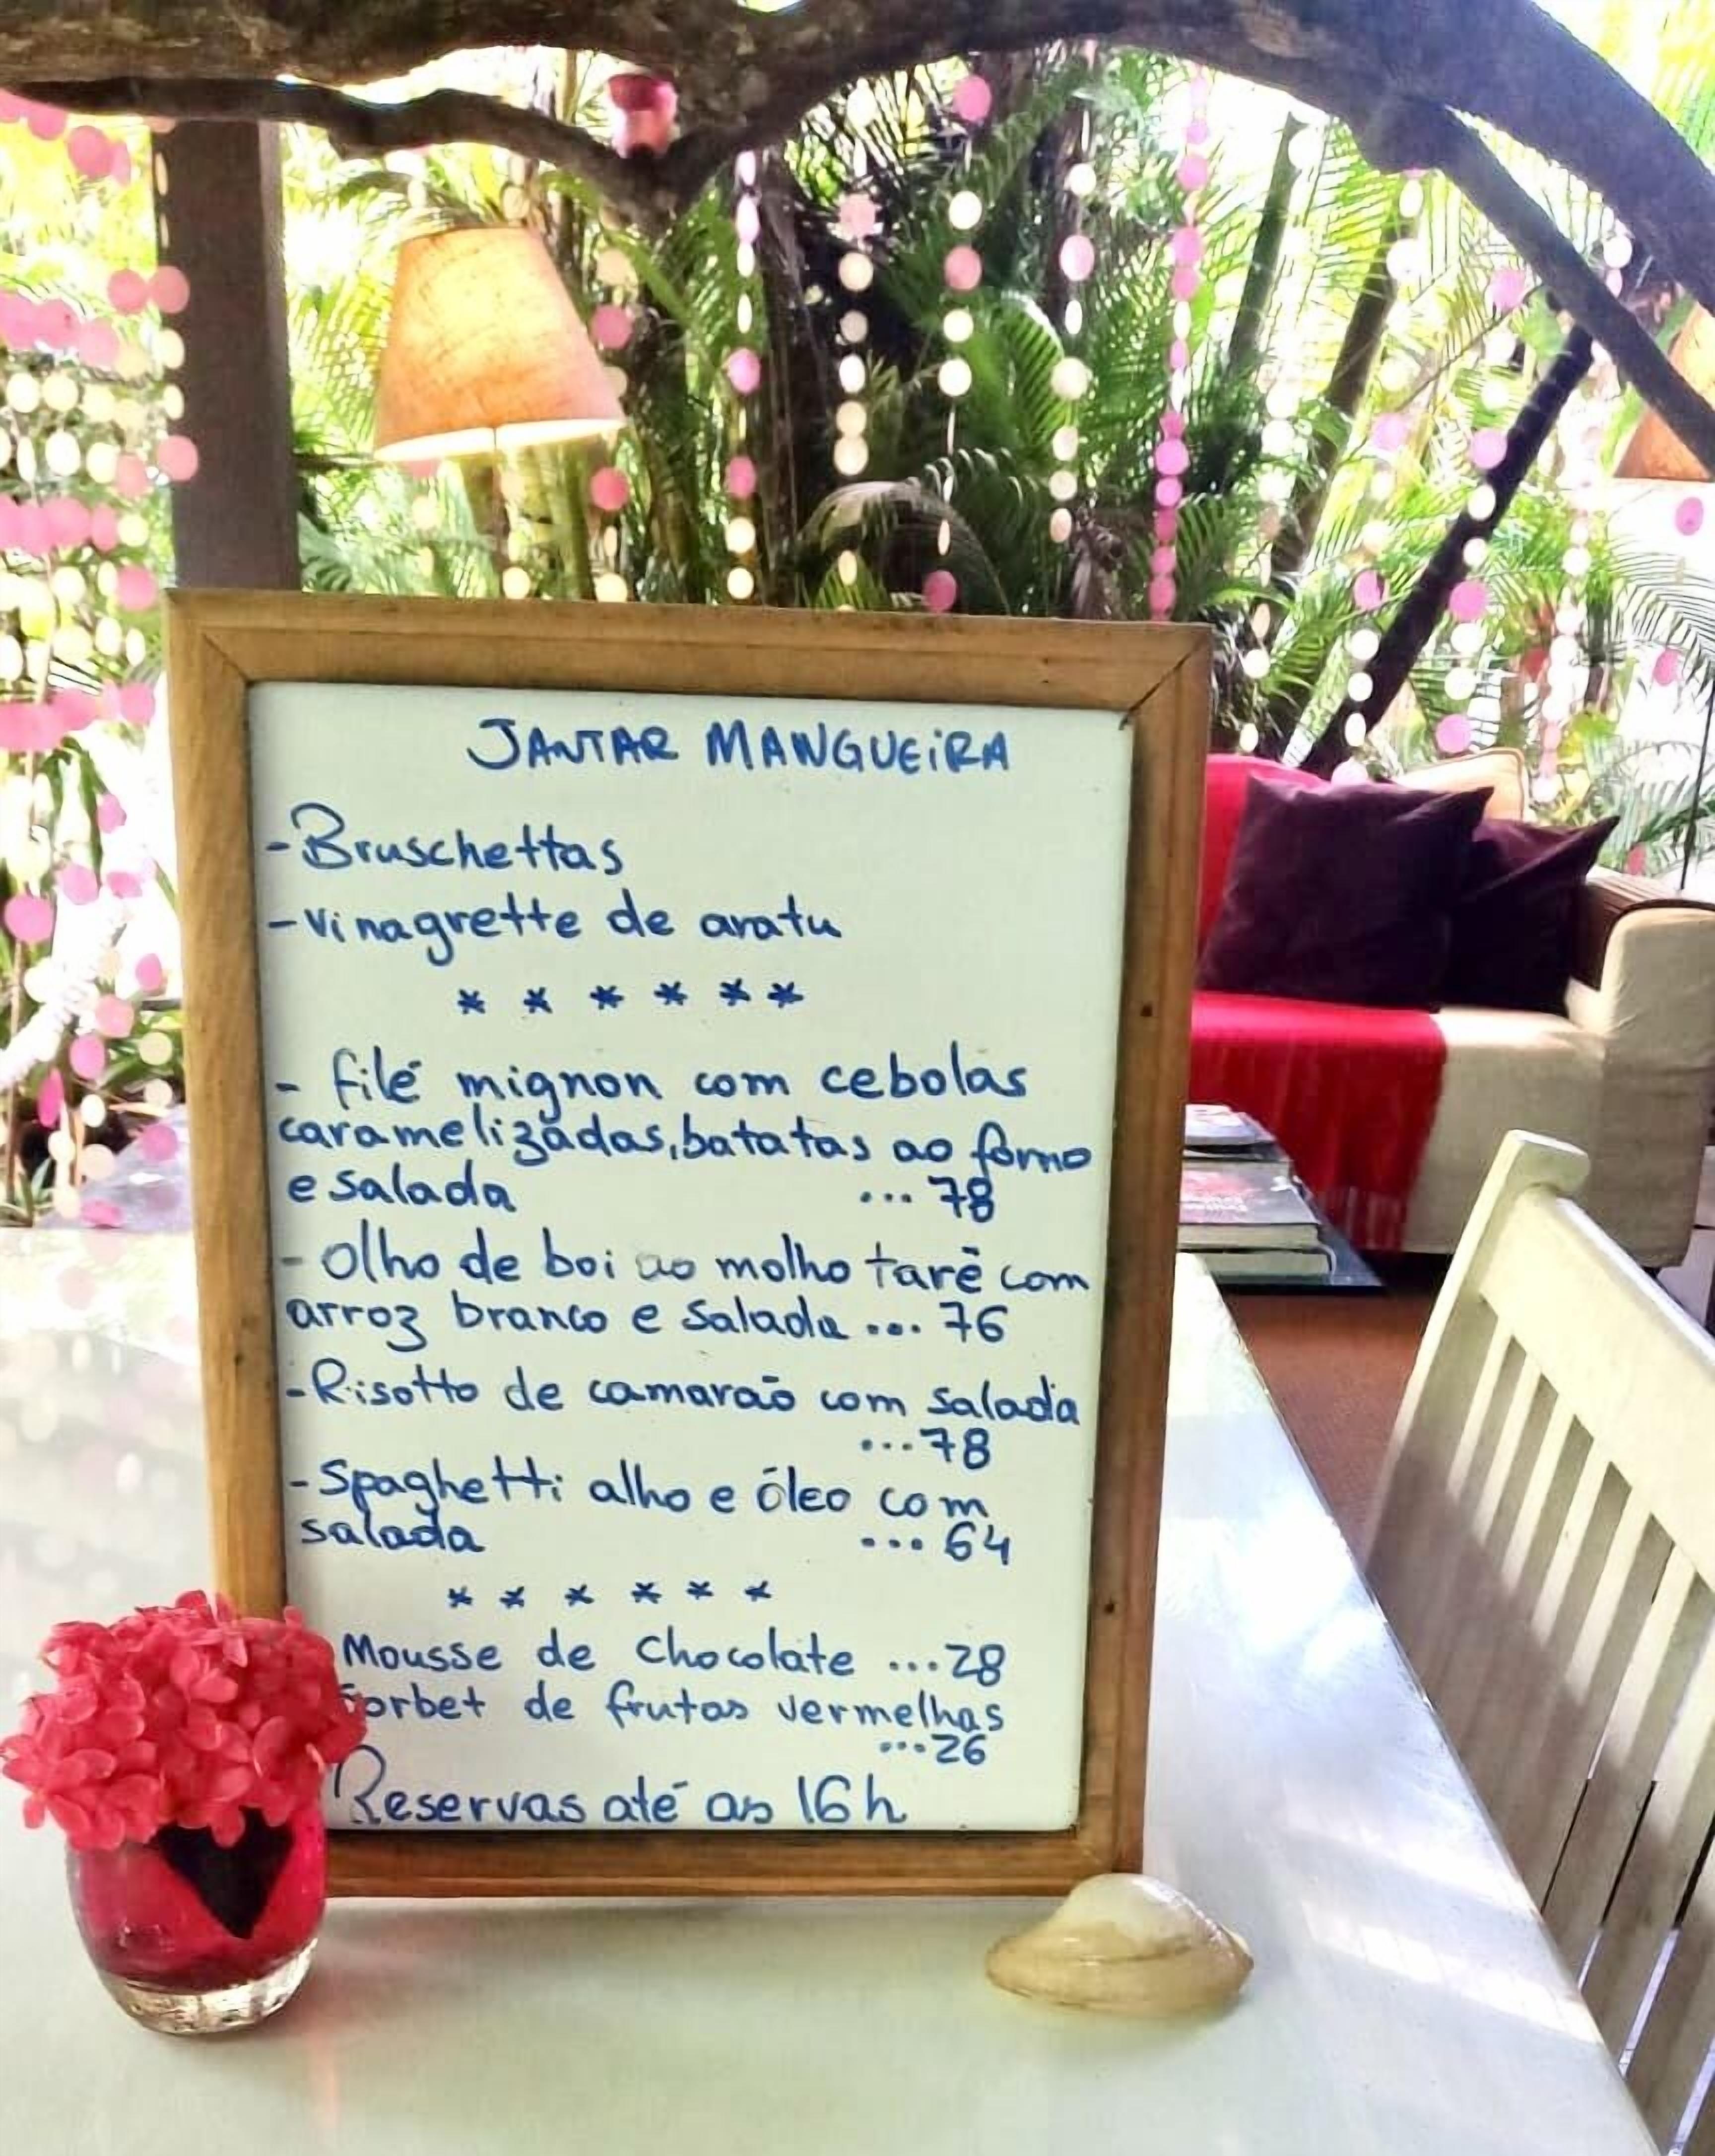 JANTAR MANGUEIRA
- Bruschettas
- vinagrette de aratu
* * * * * *
- filé mignon com cebolas
caramelizadas, batatas ao forno
e salada ... 78
- Olho de boi ao molho tarê com
arroz branco e salada ... 76
- Risotto de camarão com salada
... 78
- Spaghetti alho e óleo com
salada ... 64
* * * * * *
Mousse de chocolate ... 28
Sorbet de frutas vermelhas
... 26
Reservas até as 16h